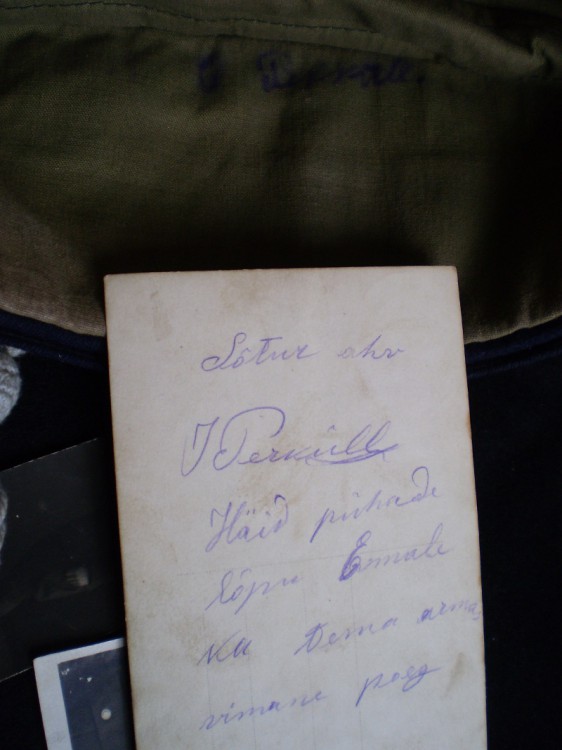 Sõtur ohv
J Perküll
Häid pühade
lõpu Emale
ka Tema arma
viman poeg